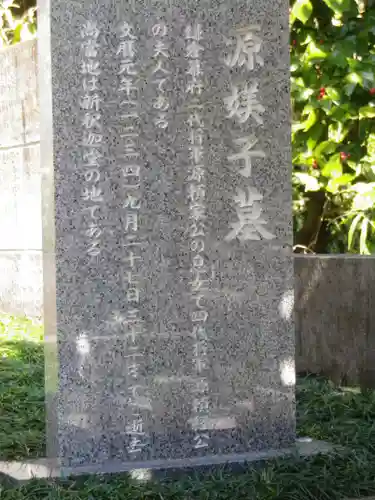 源媄子墓
鎌倉幕府二代将軍源頼家公の息女で四代将軍源頼経公
の夫人である
文暦元年(一二三四)九月二十七日三十二才で逝去
尚當地は新釈迦堂の地である